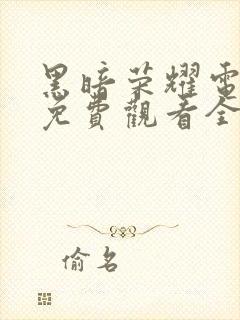 黑暗荣耀電
免費觀看全
偷名